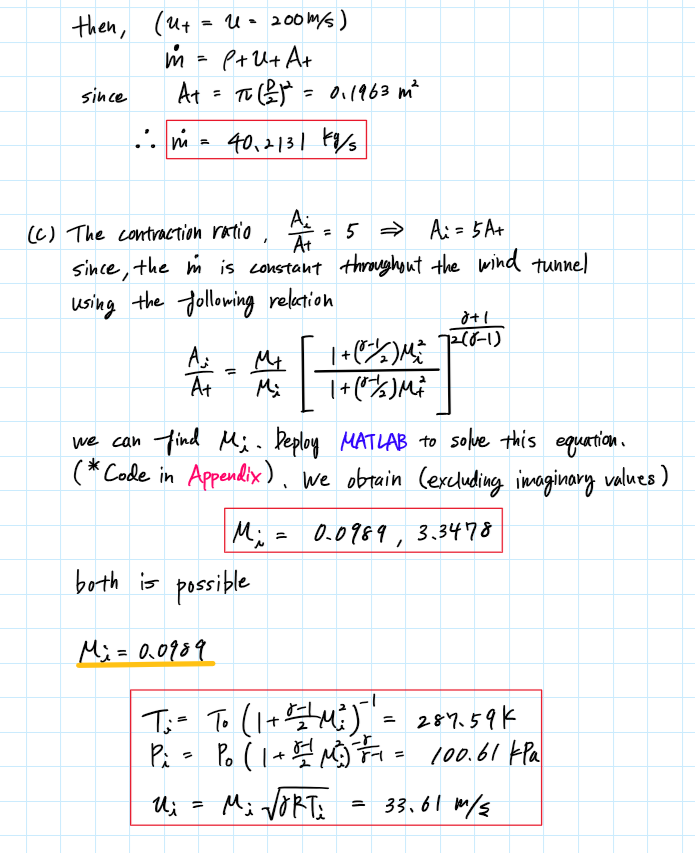 then, (u_t = u = 200 m/s)
ṁ = ρ_t u_t A_t
since A_t = π(D/2)² = 0.1963 m²
∴ ṁ = 40.2131 kg/s
(c) The contraction ratio, A_i/A_t = 5 ⇒ A_i = 5A_t
since, the ṁ is constant throughout the wind tunnel
using the following relation
A_i/A_t = M_t/M_i [ (1+(γ-1/2)M_i²) / (1+(γ-1/2)M_t²) ]^((γ+1)/(2(γ-1)))
we can find M_i. Deploy MATLAB to solve this equation.
(*Code in Appendix). We obtain (excluding imaginary values)
M_i = 0.0989, 3.3478
both is possible
M_i = 0.0989
T_i = T_0 (1 + (γ-1)/2 M_i²)^(-1) = 287.59 K
P_i = P_0 (1 + (γ-1)/2 M_i²)^(-γ/(γ-1)) = 100.61 kPa
u_i = M_i √(γRT_i) = 33.61 m/s